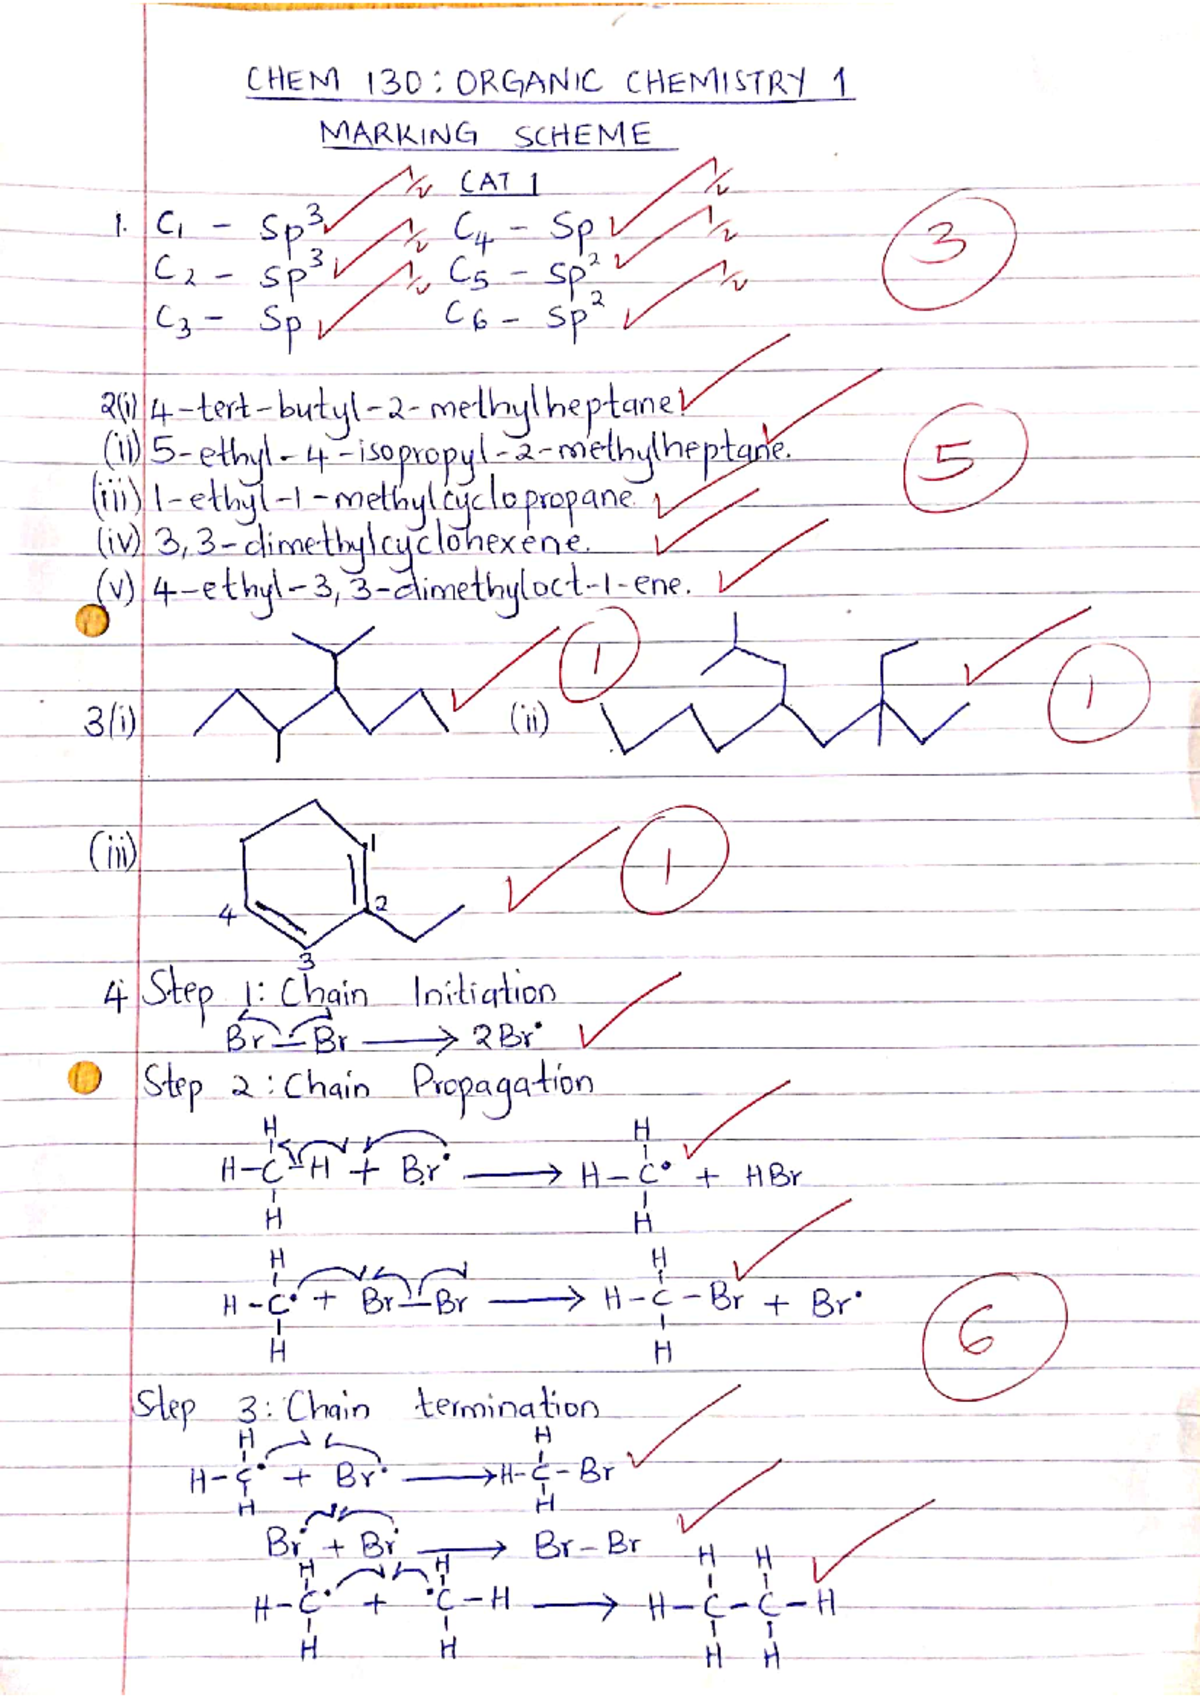 CHEM 130: ORGANIC CHEMISTRY 1
MARKING SCHEME
CAT 1
1. C₁ - Sp³ ½ C₄ - Sp ½
C₂ - Sp³ ½ C₅ - Sp² ½
C₃ - Sp ½ C₆ - Sp² ½
3
2(i) 4-tert-butyl-2-methylheptane.
(ii) 5-ethyl-4-isopropyl-2-methylheptane.
(iii) 1-ethyl-1-methylcyclopropane.
(iv) 3,3-dimethylcyclohexene.
(v) 4-ethyl-3,3-dimethyloct-1-ene.
5
3(i) 1 (ii) 1
(iii) 1 2 3 4 1
4 Step 1: Chain Initiation
Br-Br → 2Br•
Step 2: Chain Propagation
H H
H-C-H + Br• → H-C• + HBr
H H
H H
H-C• + Br-Br → H-C-Br + Br•
H H
6
Step 3: Chain termination
H H
H-C• + Br• → H-C-Br
H H
Br• + Br• → Br-Br
H H H H
H-C• + •C-H → H-C-C-H
H H H H